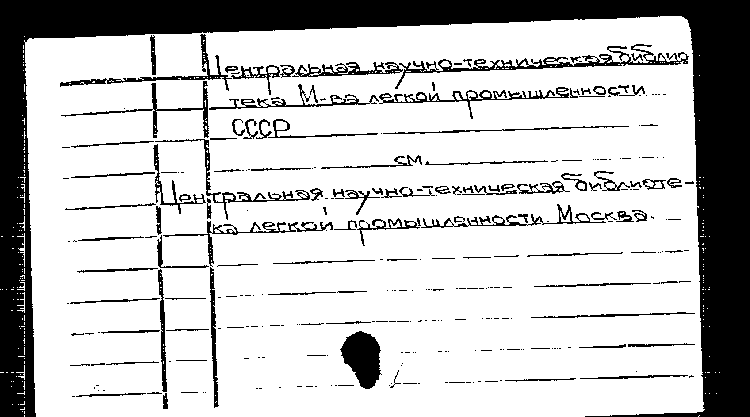 Центральная научно-техническая библио
тека М-ва легкой промышленности
СССР
см.
Центральная научно-техническая библиоте-
ка легкой промышленности. Москва.